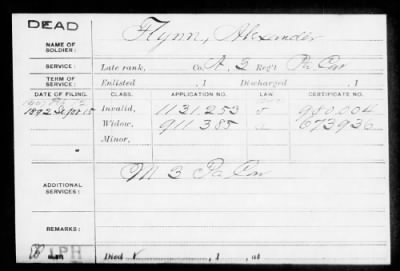 DEAD
NAME OF SOLDIER: Flynn, Alexander
SERVICE: Late rank, Co. A, 3 Reg't Pa Cav
TERM OF SERVICE: Enlisted , 1 Discharged , 1
DATE OF FILING. CLASS. APPLICATION NO. LAW CERTIFICATE NO.
1892 Sept 15 Invalid, 1131.253 980.004
Widow, 911.385 673936
Minor,
ADDITIONAL SERVICES: M 3 Pa Cav
REMARKS:
Died , 1 , at